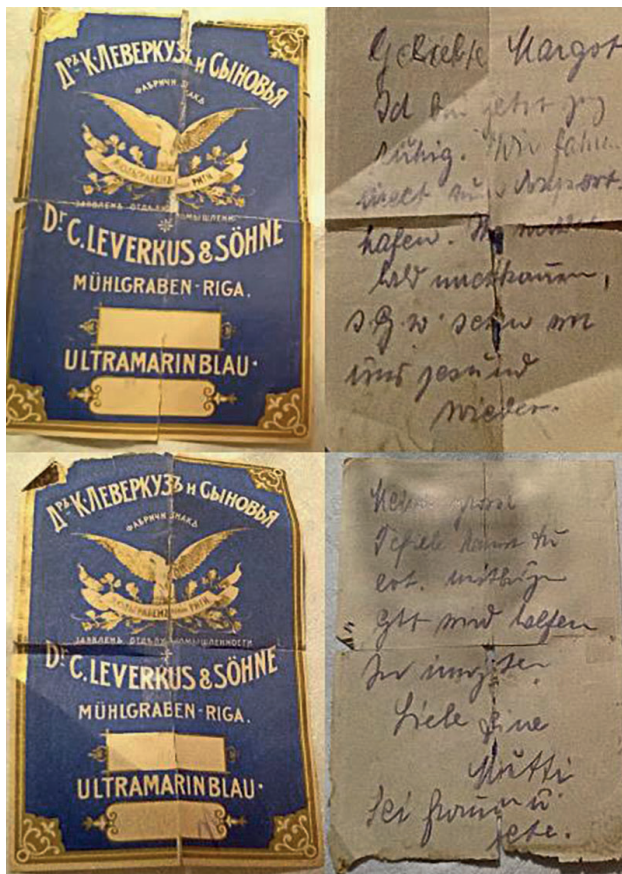 Дръ К. ЛЕВЕРКУЗЪ и СЫНОВЬЯ
ФАБРИЧН ЗНАКЪ
МЮЛЬГРАБЕНЪ РИГИ
ЗАЯВЛЕНЪ ОТДѢЛУ ПРОМЫШЛЕН
Dr. C. LEVERKUS & SÖHNE
MÜHLGRABEN-RIGA.
ULTRAMARINBLAU.
Geliebte Margot
Ich bin jetzt ganz
ruhig. Wir fahren
direkt zum
hafen.
bald
s. G. w. sehen wir
uns gesund
wieder.
Дръ К. ЛЕВЕРКУЗЪ и СЫНОВЬЯ
ФАБРИЧН ЗНАКЪ
МЮЛЬГРАБЕНЪ РИГИ
ЗАЯВЛЕНЪ ОТДѢЛУ ПРОМЫШЛЕННОСТИ
Dr. C. LEVERKUS & SÖHNE
MÜHLGRABEN-RIGA.
ULTRAMARINBLAU.
Meine
kannst Du
evt. mitbringen
Gtt wird helfen
In
Liebe Deine
Mutti
Sei fromm u